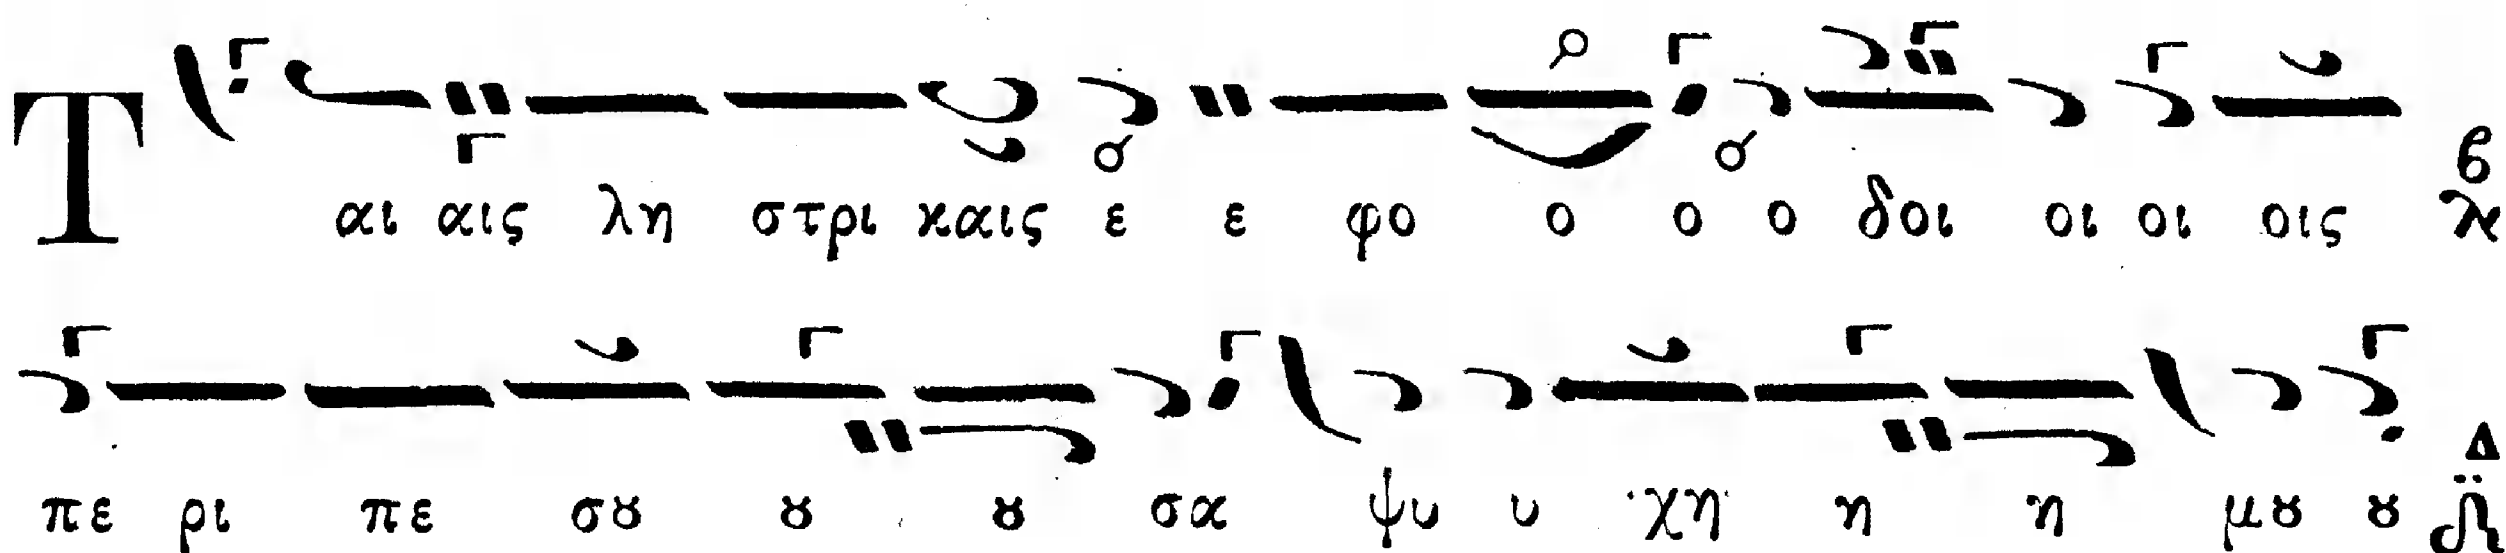 Τ αι αις λη στρι καις ε ε φο ο ο ο δοι οι οι οις
πε ρι πε σȣ ȣ ȣ σα ψυ υ χη η η μȣ ȣ Δ